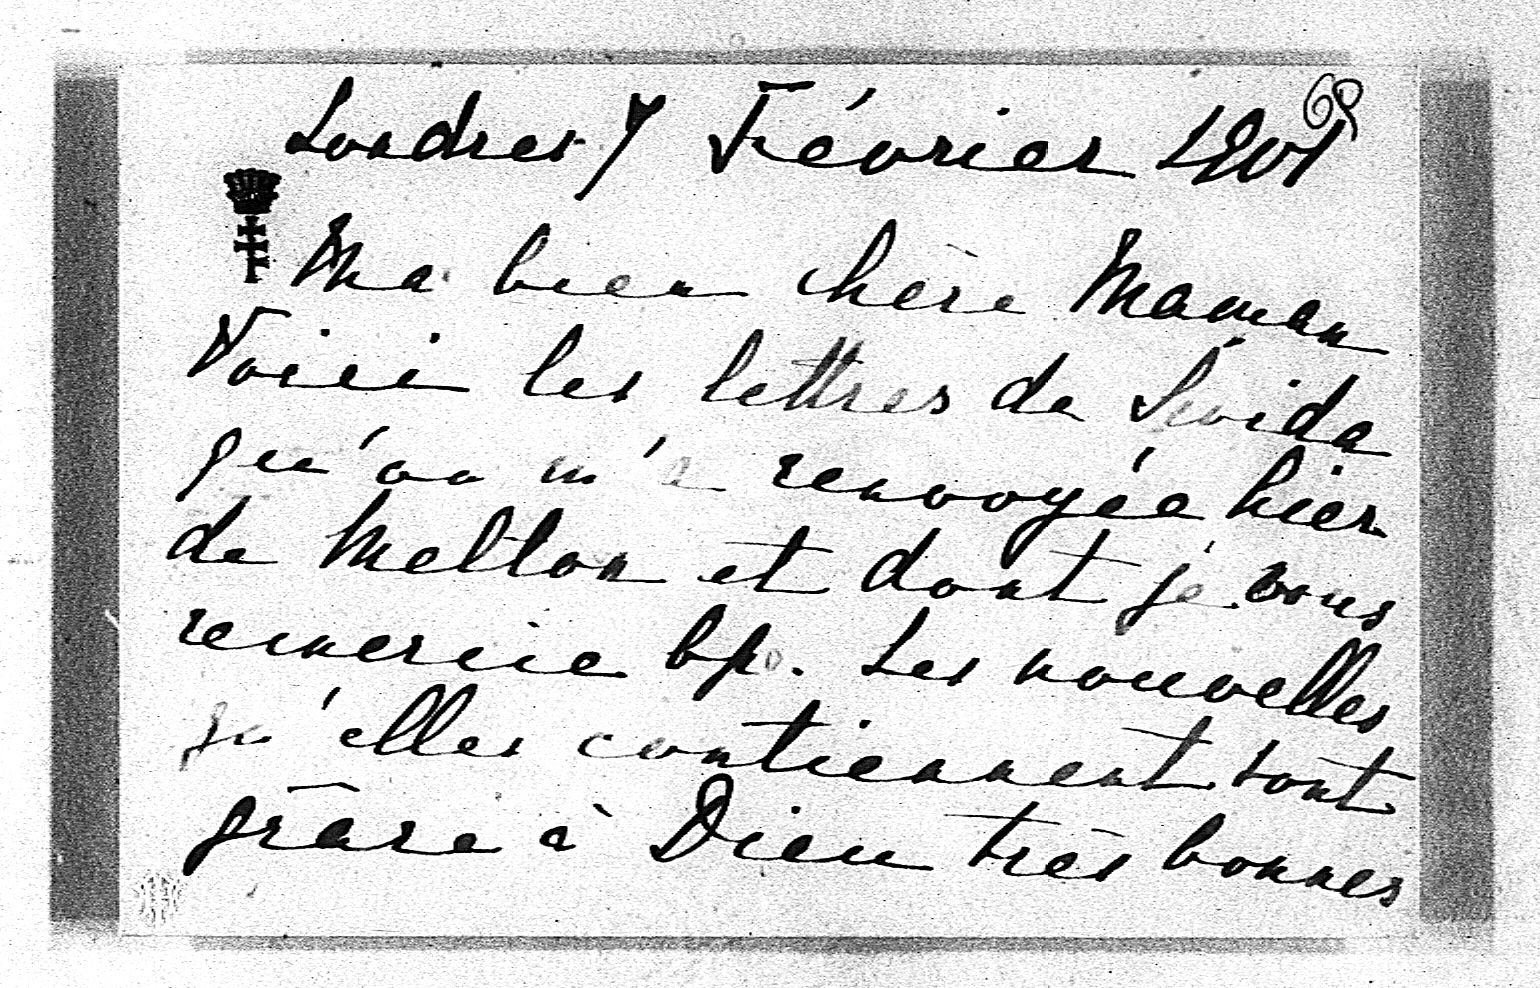 Londres 7 Février 1901
68
Ma bien chère Maman
Voici les lettres de
qu'on m'a renvoyée hier
de Melton et dont je vous
remercie bp. Les nouvelles
qu'elles contiennent sont
grâce à Dieu très bonnes